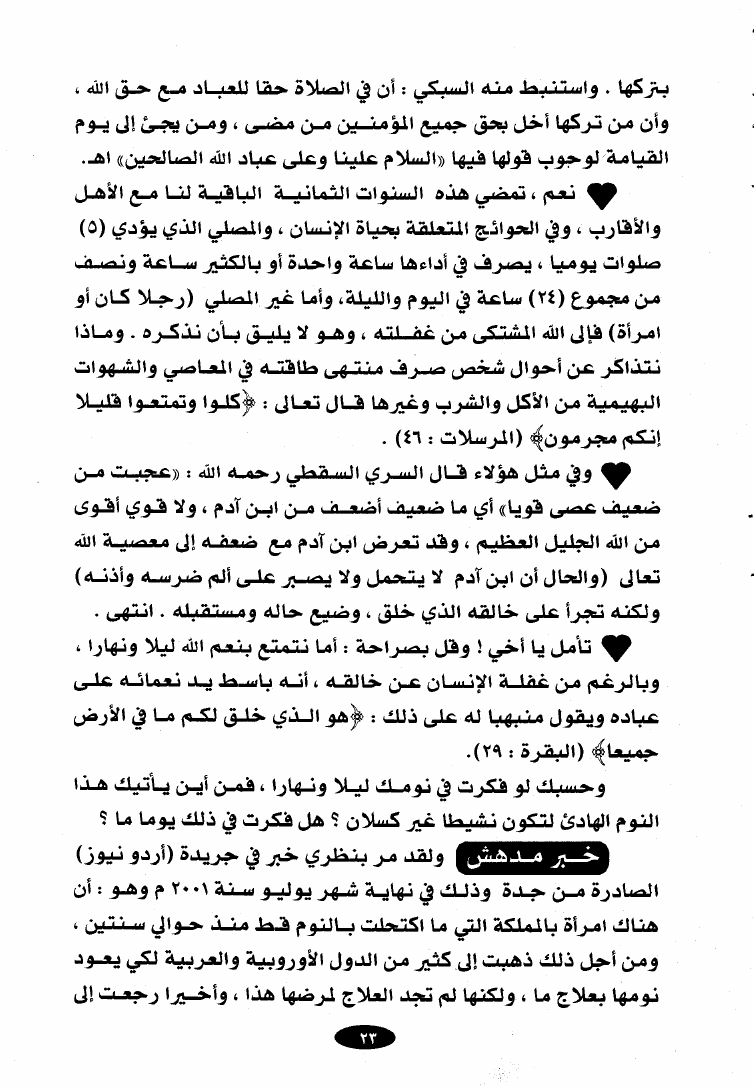 بتركها . واستنبط منه السبكي : أن في الصلاة حقا للعباد مع حق الله ،
وأن من تركها أخل بحق جميع المؤمنين من مضى ، ومن يجئ إلى يوم
القيامة لوجوب قولها فيها «السلام علينا وعلى عباد الله الصالحين» اهـ.
نعم ، تمضي هذه السنوات الثمانية الباقية لنا مع الأهل
والأقارب ، وفي الحوائج المتعلقة بحياة الإنسان ، والمصلي الذي يؤدي (٥)
صلوات يوميا ، يصرف في أداءها ساعة واحدة أو بالكثير ساعة ونصف
من مجموع (٢٤) ساعة في اليوم والليلة، وأما غير المصلي (رجلا كان أو
امرأة) فإلى الله المشتكى من غفلته ، وهو لا يليق بأن نذكره . وماذا
نتذاكر عن أحوال شخص صرف منتهى طاقته في المعاصي والشهوات
البهيمية من الأكل والشرب وغيرها قال تعالى : ﴿كلوا وتمتعوا قليلا
إنكم مجرمون﴾ (المرسلات : ٤٦) .
وفي مثل هؤلاء قال السري السقطي رحمه الله : «عجبت من
ضعيف عصى قويا» أي ما ضعيف أضعف من ابن آدم ، ولا قوي أقوى
من الله الجليل العظيم ، وقد تعرض ابن آدم مع ضعفه إلى معصية الله
تعالى (والحال أن ابن آدم لا يتحمل ولا يصبر على ألم ضرسه وأذنه)
ولكنه تجرأ على خالقه الذي خلق ، وضيع حاله ومستقبله . انتهى .
تأمل يا أخي ! وقل بصراحة : أما نتمتع بنعم الله ليلا ونهارا ،
وبالرغم من غفلة الإنسان عن خالقه ، أنه باسط يد نعمائه على
عباده ويقول منبهبا له على ذلك : ﴿هو الذي خلق لكم ما في الأرض
جميعا﴾ (البقرة : ٢٩).
وحسبك لو فكرت في نومك ليلا ونهارا ، فمن أين يأتيك هذا
النوم الهادئ لتكون نشيطا غير كسلان ؟ هل فكرت في ذلك يوما ما ؟
خبر مدهش ولقد مر بنظري خبر في جريدة (أردو نيوز)
الصادرة من جدة وذلك في نهاية شهر يوليو سنة ٢٠٠١ م وهو : أن
هناك امرأة بالمملكة التي ما اكتحلت بالنوم قط منذ حوالي سنتين ،
ومن أجل ذلك ذهبت إلى كثير من الدول الأوروبية والعربية لكي يعود
نومها بعلاج ما ، ولكنها لم تجد العلاج لمرضها هذا ، وأخيرا رجعت إلى
٢٣